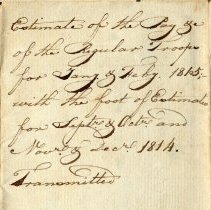 Estimate of the Pay &c
of the Regular Troops
for Jany & Feby. 1815;
with the foot of Estimates
for Septr & Octr and
Novr & Decr. 1814.
Transmitted